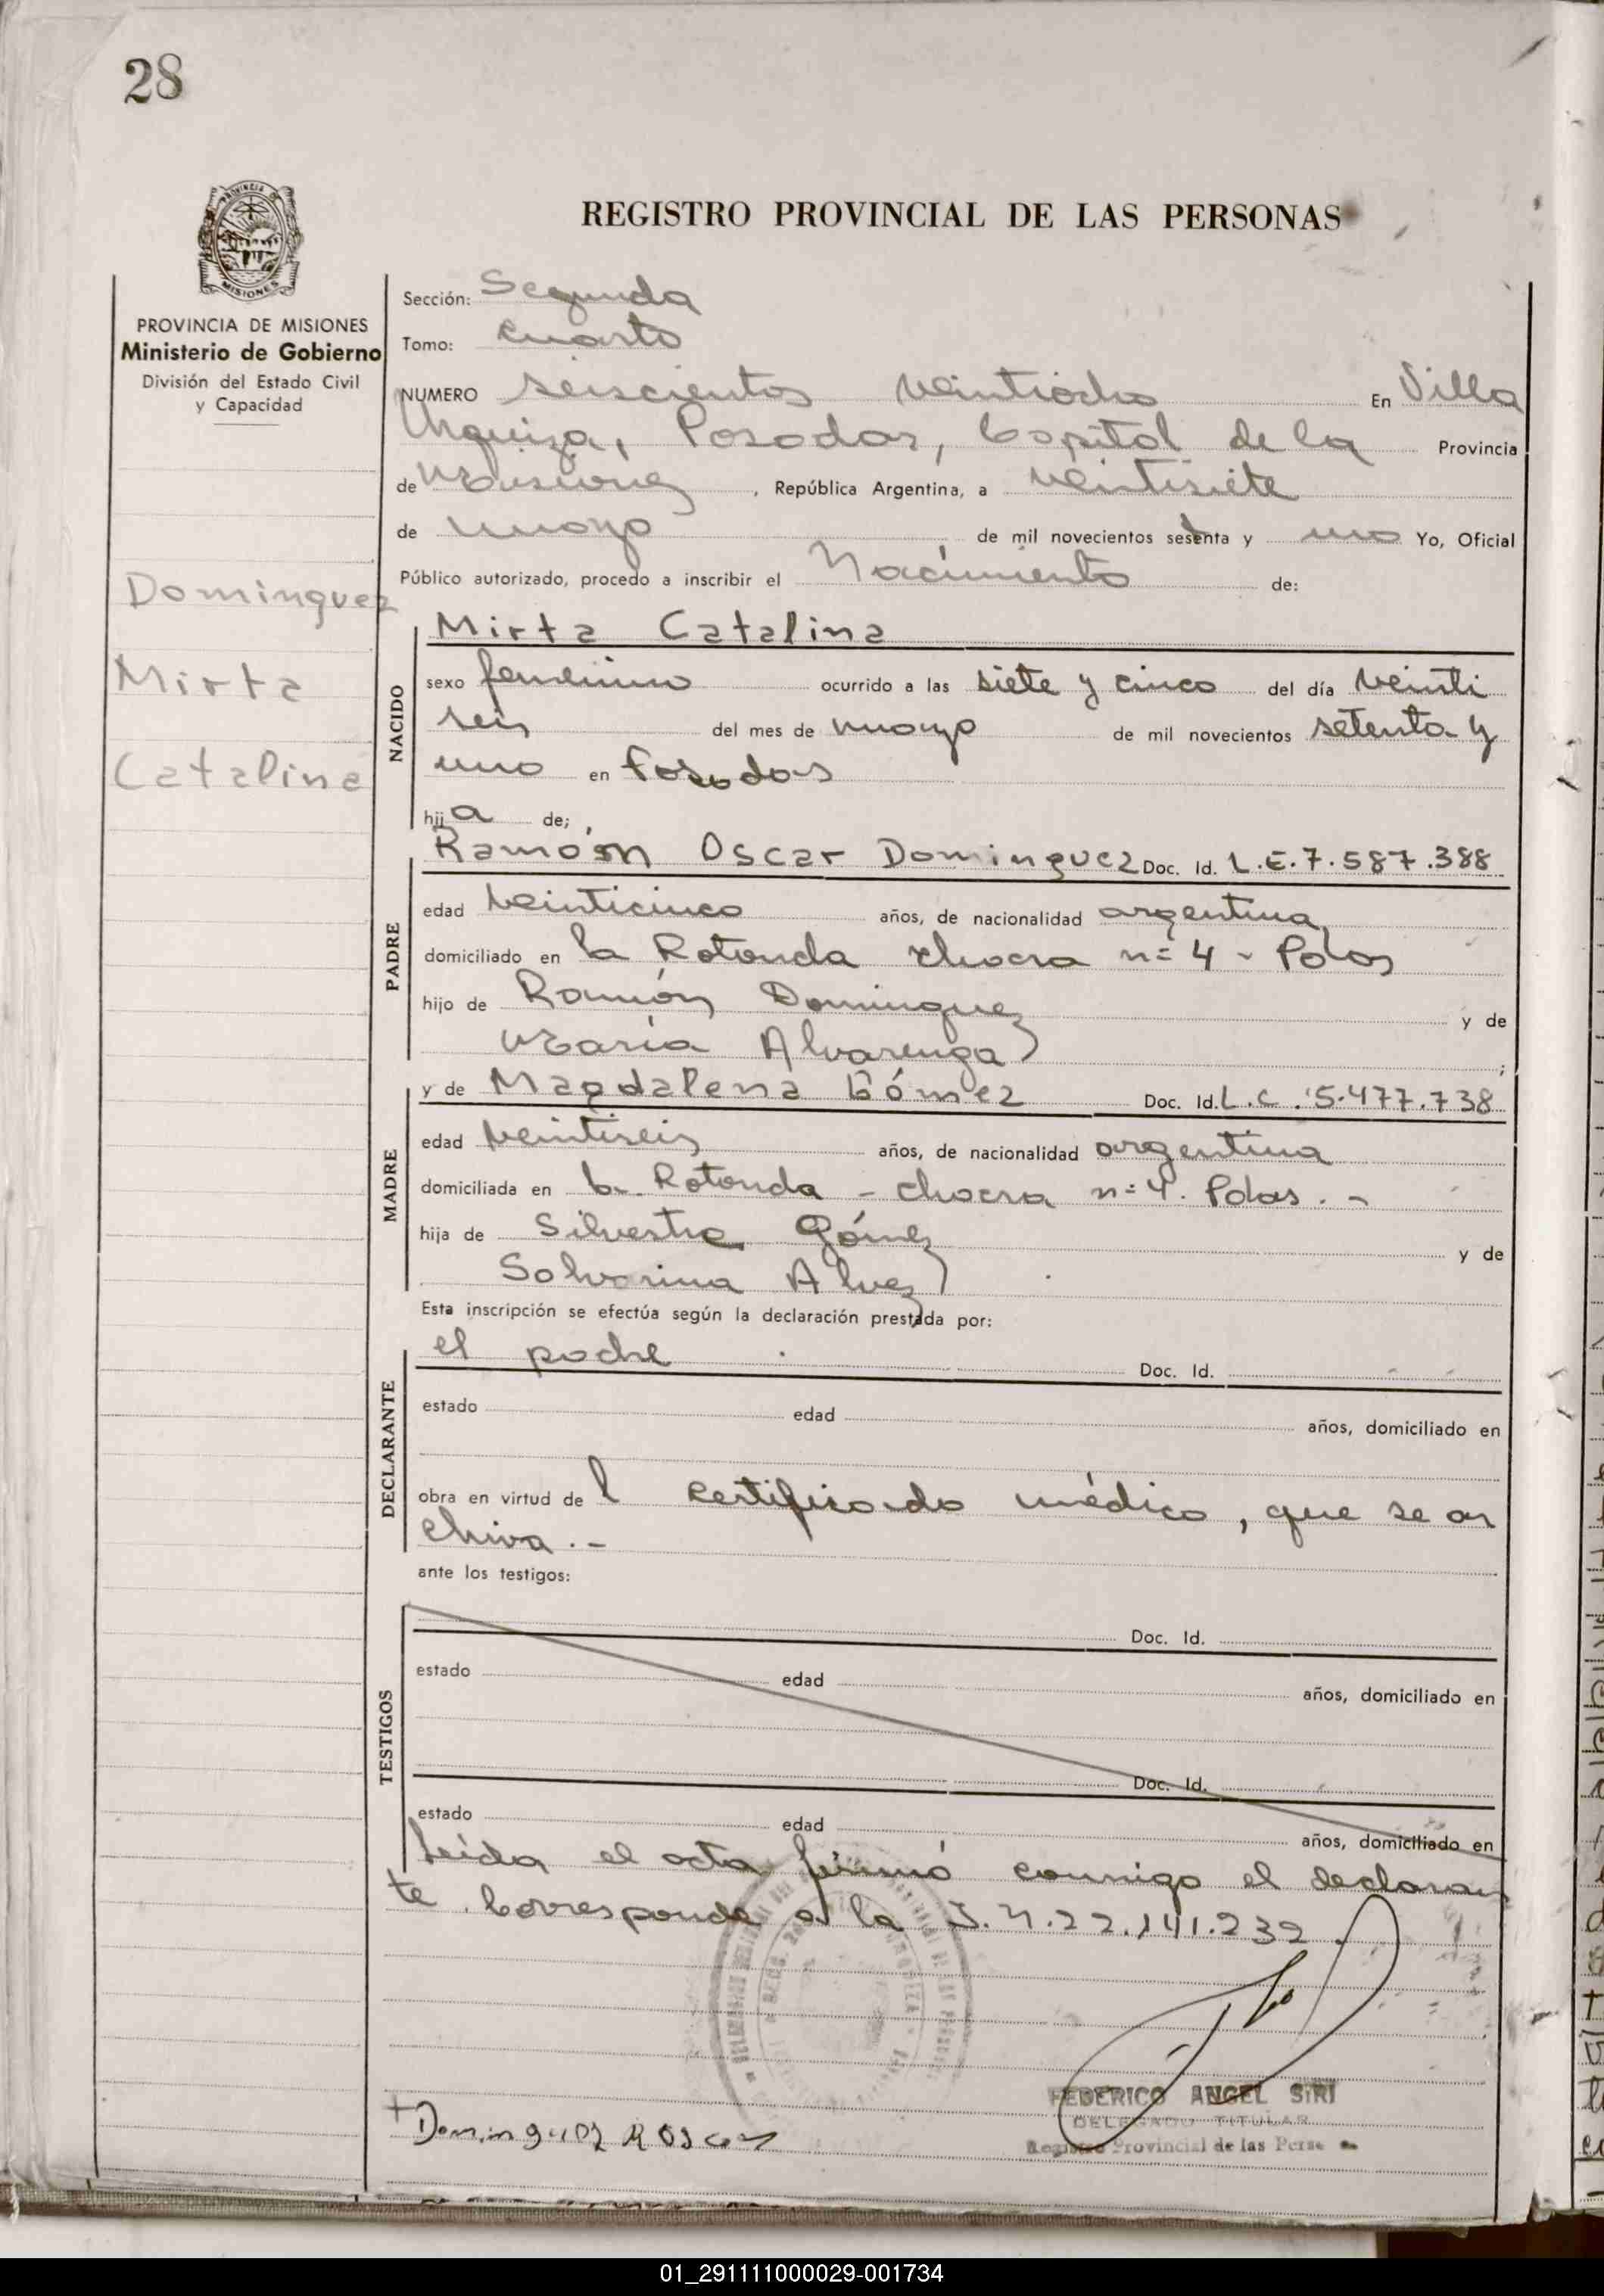 28
PROVINCIA DE MISIONES
Ministerio de Gobierno
División del Estado Civil
y Capacidad
Dominguez
Mirta
Catalina
REGISTRO PROVINCIAL DE LAS PERSONAS
Sección: Segunda
Tomo: cuarto
NUMERO seiscientos veintiocho En Villa
Urquiza, Posadas, Capital de la Provincia
de Misiones, República Argentina, a veintisiete
de mayo de mil novecientos setenta y uno Yo, Oficial
Público autorizado, procedo a inscribir el Nacimiento de:
NACIDO
Mirta Catalina
sexo femenino ocurrido a las siete y cinco del día veinti
seis del mes de mayo de mil novecientos setenta y
uno en Posadas
hija de;
PADRE
Ramón Oscar Dominguez Doc. Id. L.E.7.587.388
edad veinticinco años, de nacionalidad argentina
domiciliado en la Rotonda chacra n=4 - Pdas
hijo de Ramón Dominguez y de
María Alvarenga ;
MADRE
y de Magdalena Gómez Doc. Id. L.C. 5.477.738
edad veintiseis años, de nacionalidad argentina
domiciliada en la Rotonda - chacra n=4. Pdas. -
hija de Silvestre Gómez y de
Salvarina Alvez
Esta inscripción se efectúa según la declaración prestada por:
DECLARANTE
el padre Doc. Id.
estado edad años, domiciliado en
obra en virtud del certificado médico, que se ar
chiva. -
ante los testigos:
TESTIGOS
Doc. Id.
estado edad años, domiciliado en
Doc. Id.
estado edad años, domiciliado en
Leída el acta firmó conmigo el declaran
te. Corresponde a la I.N.22.141.232.
FEDERICO ANGEL SIRI
DELEGADO TITULAR
Registro Provincial de las Perso
Dominguez R Oscar
01_291111000029-001734